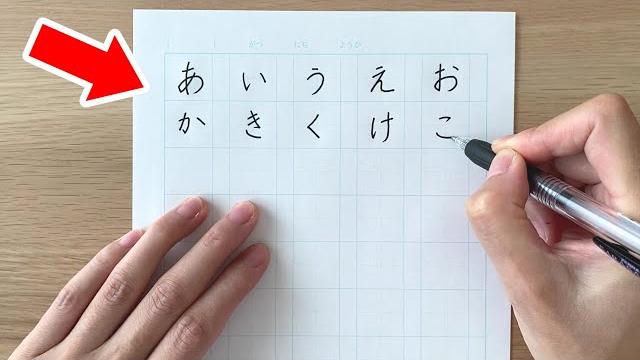 がつ にち ようび
あ い う え お
か き く け こ